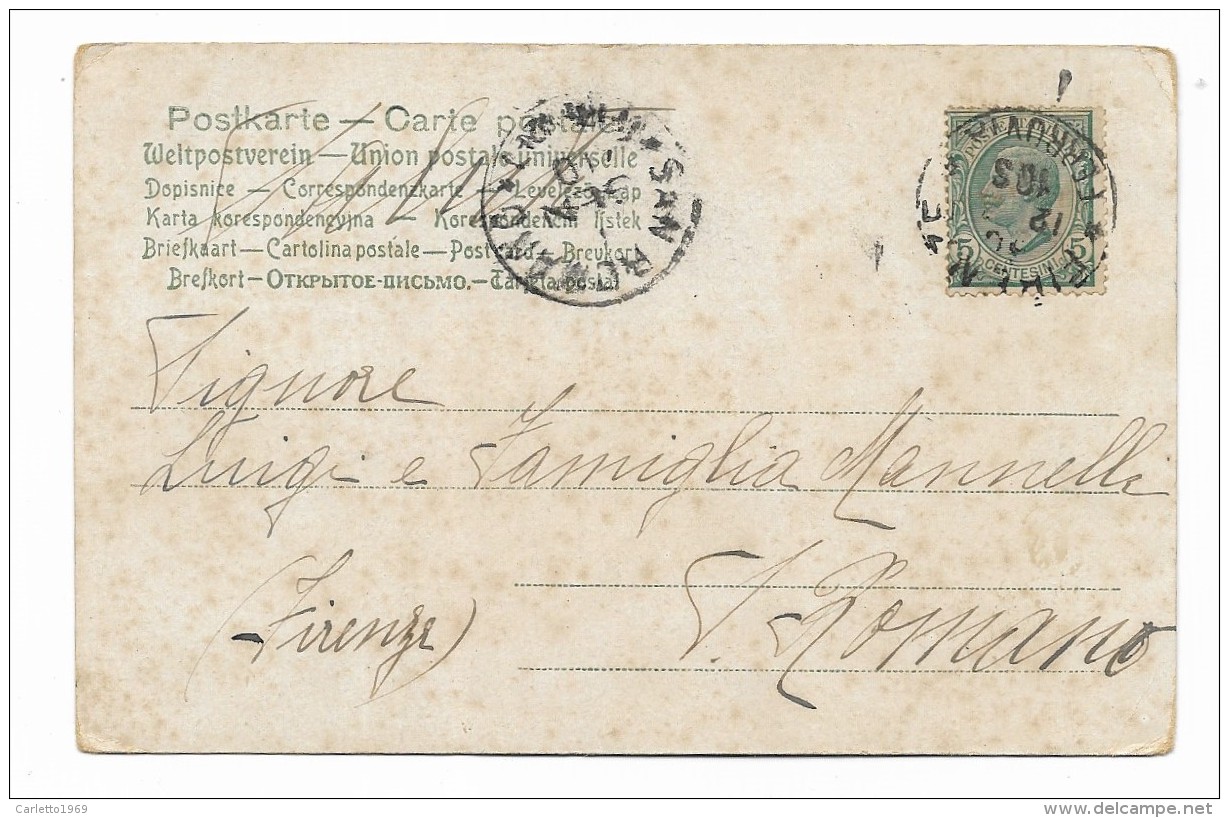 Postkarte — Carte postale
Weltpostverein — Union postale universelle
Dopisnice — Correspondenzkarte — Levelező-Lap
Karta korespondencyjna — Korespondencni listek
Briefkaart — Cartolina postale — Post card — Brevkort
Brefkort — Открытое-письмо. — Tarjeta postal
SAN ROMANO
5 CENTESIMI 5
Signore
Luigi e Famiglia Mannelli
S. Romano
(Firenze)
Carletto1969
delcampe.net